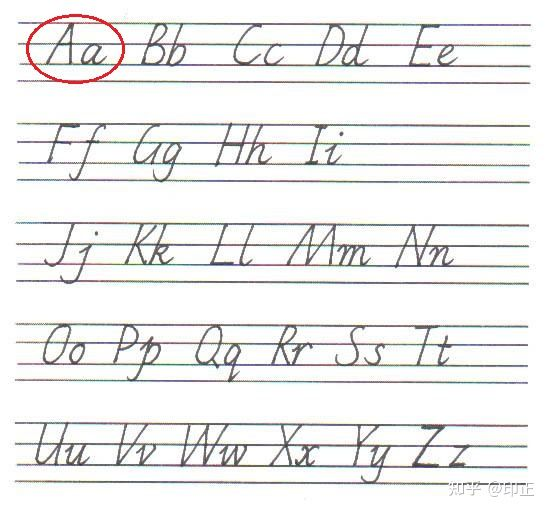 Aa Bb Cc Dd Ee
Ff Gg Hh Ii
Jj Kk Ll Mm Nn
Oo Pp Qq Rr Ss Tt
Uu Vv Ww Xx Yy Zz
知乎 @印正